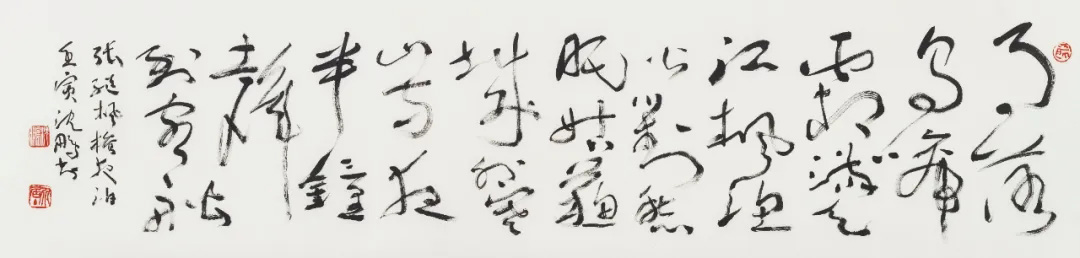 月落
烏啼
霜滿天
江楓漁
火對愁
眠姑蘇
城外寒
山寺夜
半鐘
聲
到客船
張繼楓橋夜泊
壬寅沈鵬书